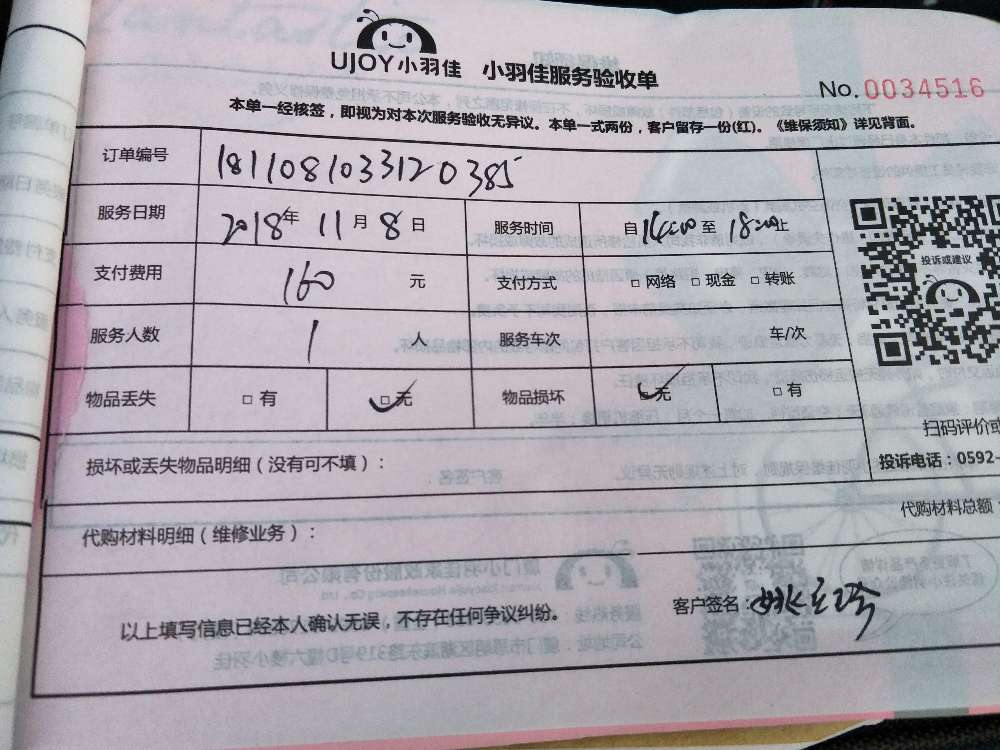 UJOY小羽佳 小羽佳服务验收单
No.0034516
本单一经核签，即视为对本次服务验收无异议。本单一式两份，客户留存一份(红)。《维保须知》详见背面。
订单编号 1811081033120385
服务日期 2018年 11月 8日 服务时间 自 16:00 至 18:00止
支付费用 160 元 支付方式 □ 网络 □ 现金 □ 转账
服务人数 1 人 服务车次 车/次
物品丢失 □ 有 □ 无 物品损坏 □ 无 □ 有
投诉或建议
扫码评价或
投诉电话：0592-
损坏或丢失物品明细（没有可不填）：
代购材料明细（维修业务）：
代购材料总额：
以上填写信息已经本人确认无误，不存在任何争议纠纷。
客户签名：